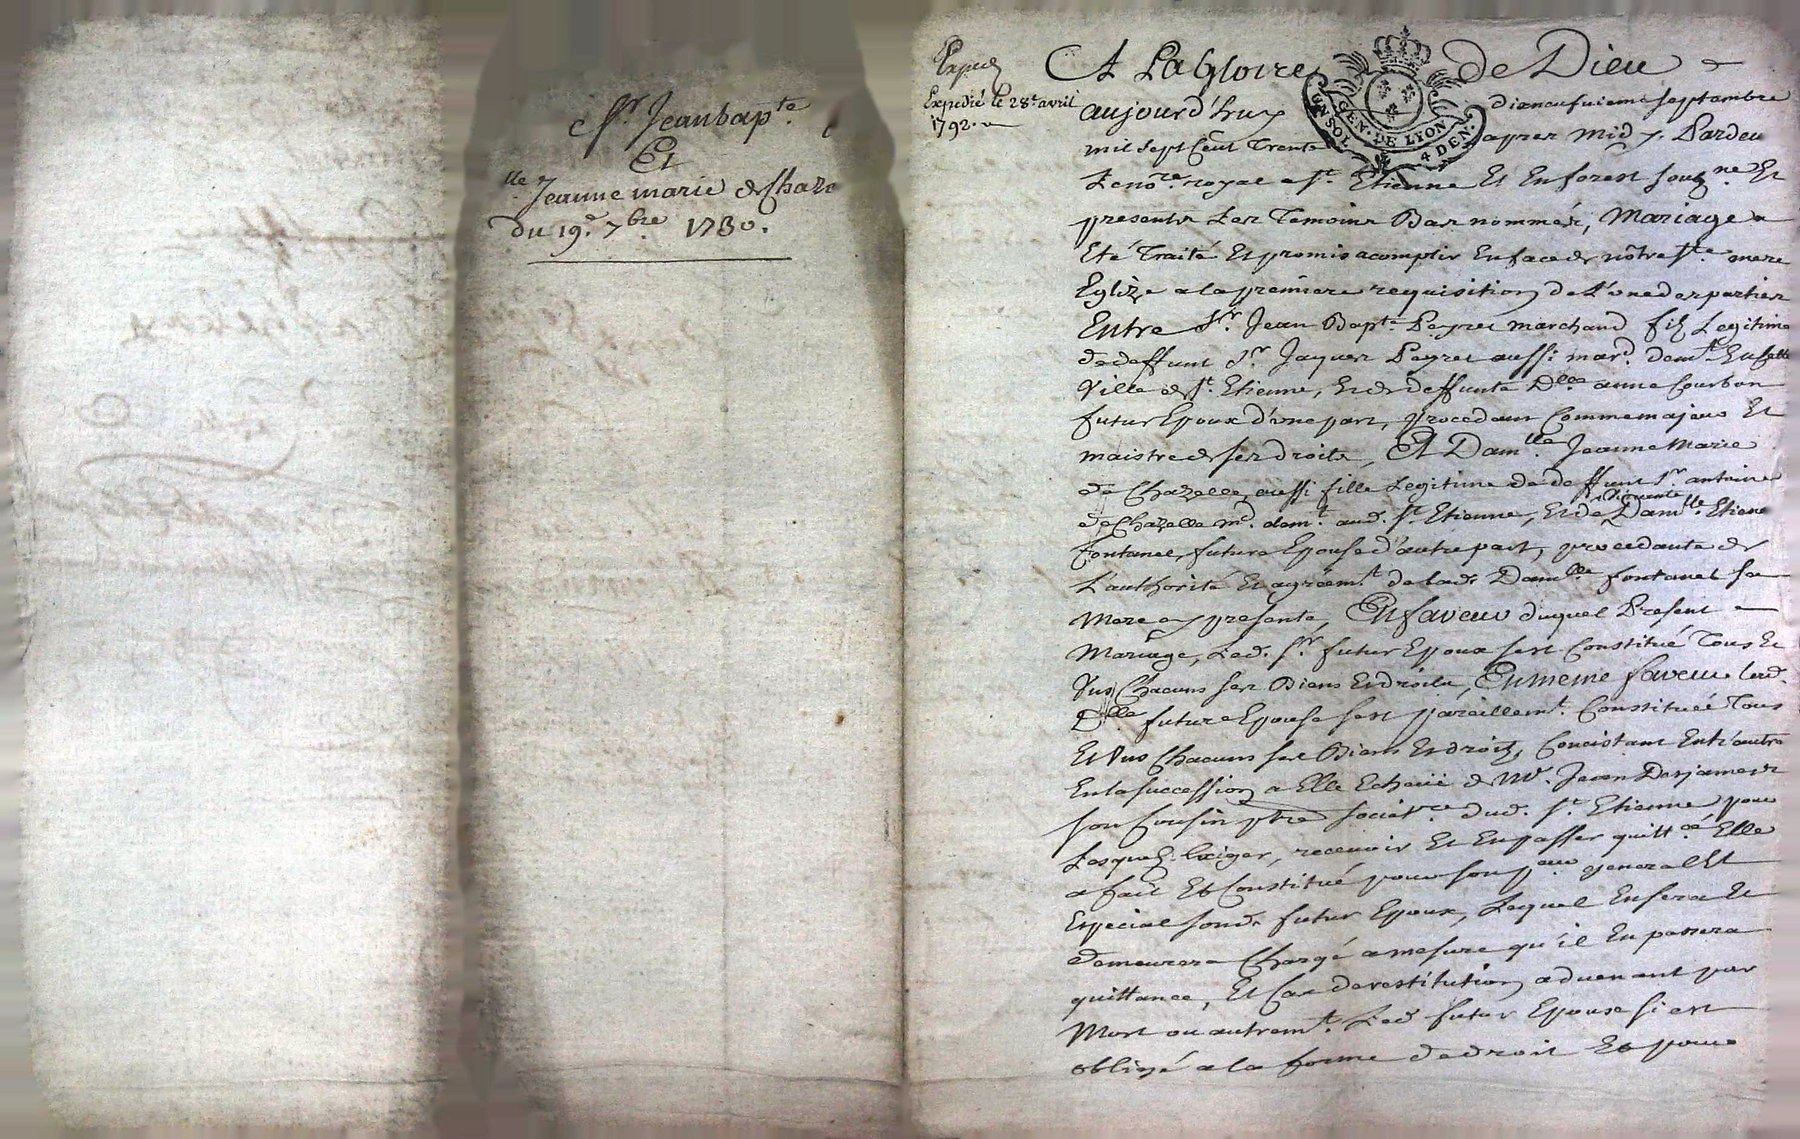 Sr. Jean bapte
Et
lle Jeanne marie de Chaze
du 19e. 7bre 1730.
Expedié le 28e avril
1792.
A La Gloire de Dieu
GEN. DE LYON
UN SOL 4 DEN.
aujourd'huy dixneufuieme septembre
mil sept Cent Trente apres midy Pardeu
Le nore. royal a St. Etienne Et En forest souzne Et
presents Les Temoins Bas nommés, Mariage a
Eté Traité Et promis acomplir En face de nôtre Ste mere
Eglize a la premiere requisition de L'une des parties
Entre Sr. Jean Bapte Peyret marchand fils Legitime
de deffunt Sr. Jaques Peyret aussi mard. demt. En cette
Ville de St. Etienne, Et de deffunte Dlle anne Courbon
futur Epoux d'une part, procedant Comme majeur Et
maistre de ses droits, Et Damlle. Jeanne Marie
de Chazelle, aussi fille Legitime de deffunt Sr. antoine
de Chazelle md. demt. aud. St. Etienne, Et de Damlle. Etiene
Fontanel, future Epouse d'autre part, procedante de
L'authorité Et agréemt. de lad. Damlle fontanel sa
Mere cy presente, En faveur duquel Present
Mariage, Led. Sr. futur Epoux s'est Constitué Tous Et
Uns Chacuns ses Biens Et droits, En meme faveur lad.
Dlle future Epouse s'est pareillemt. Constituée Tous
Et Uns Chacuns ses Biens Et droits, Concistant Entr'autre
En la succession a Elle Echeüe de Mr. Jean Desjames
son Cousin ptre societre dud. St. Etienne pour
Lesquels Exiger, recevoir Et En passer quittce Elle
a fait Et Constitué pour son general Et
Especial sond. futur Epoux, Lequel En sera Et
demeurera Chargé a mesure qu'il En passera
quittance, Et Cas de restitution aduenant par
Mort ou autremt. Led. futur Epoux s'i est
obligé a la forme de droit Et pour